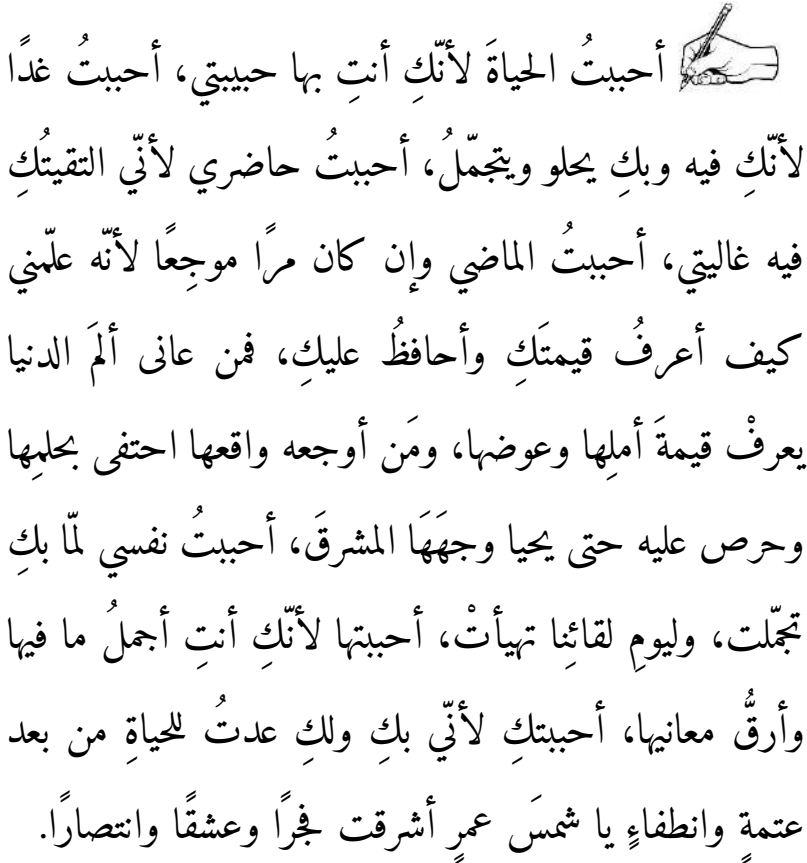 أحببتُ الحياةَ لأنّكِ أنتِ بها حبيبتي، أحببتُ غدًا
لأنّكِ فيه وبكِ يحلو ويتجمّلُ، أحببتُ حاضري لأنّي التقيتُكِ
فيه غاليتي، أحببتُ الماضي وإن كان مرًا موجِعًا لأنّه علّمني
كيف أعرفُ قيمتَكِ وأحافظُ عليكِ، فمن عانى ألمَ الدنيا
يعرفْ قيمةَ أملِها وعوضها، ومَن أوجعه واقعها احتفى بحلمِها
وحرص عليه حتى يحيا وجهَهَا المشرقَ، أحببتُ نفسي لمّا بكِ
تجمّلت، وليومِ لقائِنا تهيأتْ، أحببتها لأنّكِ أنتِ أجملُ ما فيها
وأرقُّ معانيها، أحببتكِ لأنّي بكِ ولكِ عدتُ للحياةِ من بعد
عتمةٍ وانطفاءٍ يا شمسَ عمرٍ أشرقت فجرًا وعشقًا وانتصارًا.